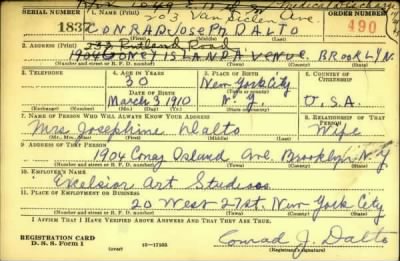 203 Van Siclen Ave.
SERIAL NUMBER 1. NAME (Print) ORDER NUMBER
1837 CONRAD JOSEPH DALTO 490
(First) (Middle) (Last)
2. ADDRESS (Print)
Rutland Road
1904 CONEY ISLAND AVENUE BROOKLYN.
(Number and street or R. F. D. number) (Town) (County) (State)
3. TELEPHONE 4. AGE IN YEARS 5. PLACE OF BIRTH 6. COUNTRY OF CITIZENSHIP
30 New York City
DATE OF BIRTH (Town or county)
March 3 1910 N. Y. U.S.A.
(Exchange) (No.) (Mo.) (Day) (Yr.) (State or country)
7. NAME OF PERSON WHO WILL ALWAYS KNOW YOUR ADDRESS 8. RELATIONSHIP OF THAT PERSON
Mrs. Josephine Dalto Wife
(Mr., Mrs., Miss) (First) (Middle) (Last)
9. ADDRESS OF THAT PERSON
1904 Coney Island Ave. Brooklyn N.Y.
(Number and street or R. F. D. number) (Town) (County) (State)
10. EMPLOYER'S NAME
Excelsior Art Studios
11. PLACE OF EMPLOYMENT OR BUSINESS
20 West 27 st. New York City
(Number and street or R. F. D. number) (Town) (County) (State)
I AFFIRM THAT I HAVE VERIFIED ABOVE ANSWERS AND THAT THEY ARE TRUE.
REGISTRATION CARD
D. S. S. Form 1 (over) 16-17105 Conrad J. Dalto
(Registrant's signature)